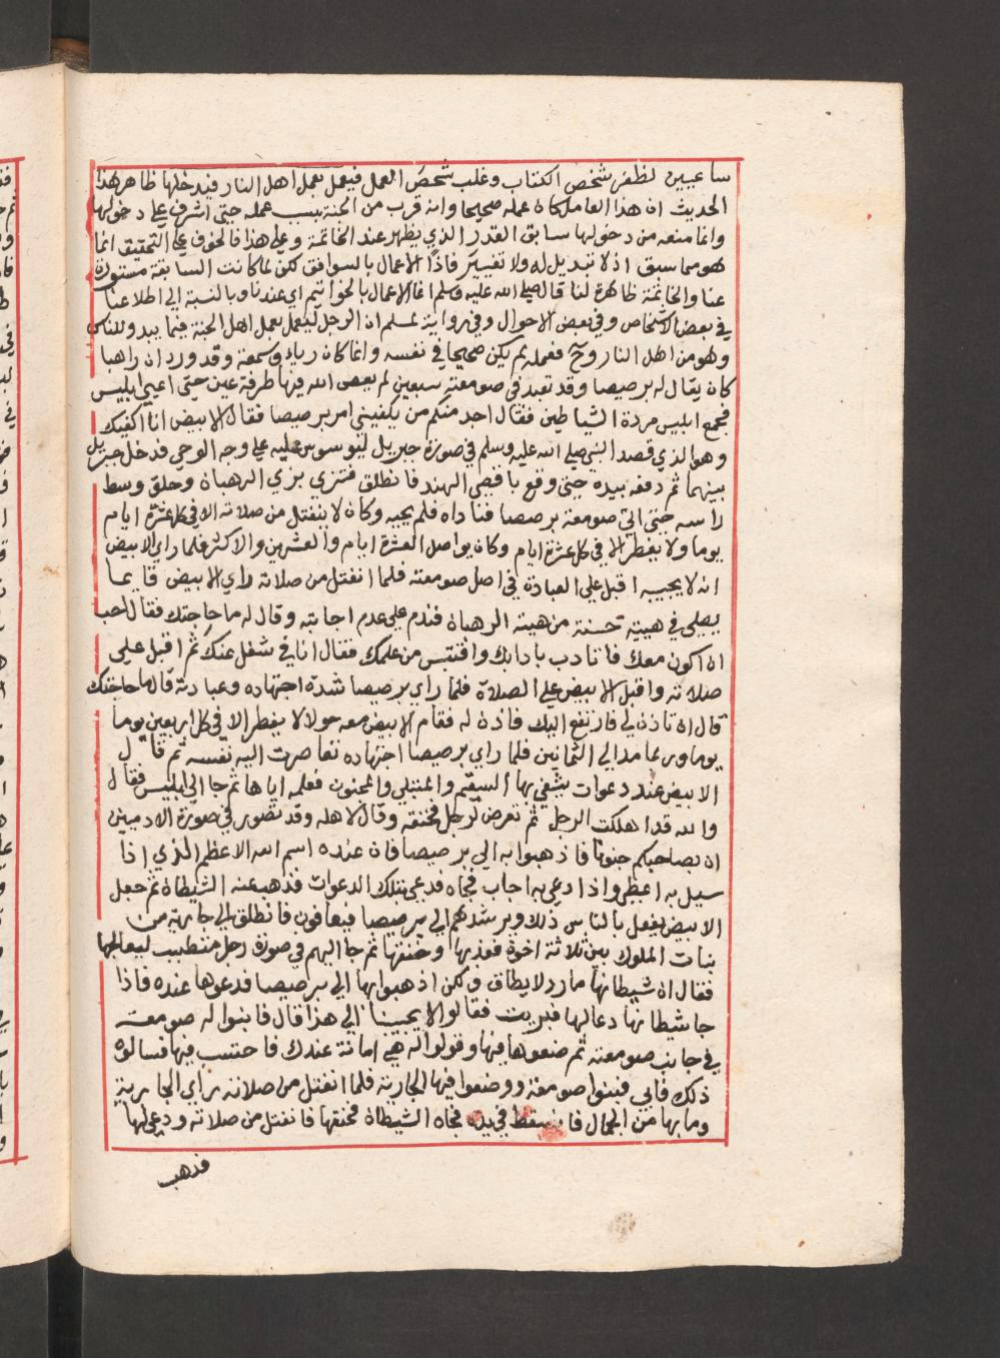 ساعيين لظفر شخص الكتاب وغلب شخص العمل فيعمل بعمل اهل النار فيدخلها ظاهر هذا
الحديث ان هذا العامل كان عمله صحيحا وانه قرب من الجنة بسبب عمله حتى اشرف على دخولها
وانما منعه من دخولها سابق القدر الذي يظهر عند الخاتمة وعلى هذا فالخوف على التحقيق انما
هو مما سبق اذ لا تبديل له ولا تغيير فاذا الاعمال بالسوابق لكن لما كانت السابقة مستورة
عنا والخاتمة ظاهرة لنا قال صلى الله عليه وسلم انما الاعمال بالخواتيم اي عندنا وبالنسبة الى اطلاعنا
في بعض الاشخاص وفي بعض الاحوال وفي رواية لمسلم ان الرجل ليعمل بعمل اهل الجنة فيما يبدو للناس
وهو من اهل النار وح فعمله لم يكن صحيحا في نفسه وانما كان رياء وسمعة وقد ورد ان راهبا
كان يقال له برصيصا وقد تعبد في صومعته سبعين لم يعص الله فيها طرفة عين حتى اعيى ابليس
فجمع ابليس مردة الشياطين فقال احد منكم من يكفيني امر برصيصا فقال الابيض انا اكفيك
وهو الذي قصد النبي صلى الله عليه وسلم في صورة جبريل ليوسوس عليه على وجه الوحي فدخل جبريل
بينهما ثم دفعه بيده حتى وقع باقصى الهند فانطلق فتزي بزي الرهبان وحلق وسط
راسه حتى اتى صومعة برصيصا فناداه فلم يجبه وكان لا ينفتل من صلاته الا في كل عشرة ايام
يوما ولا يفطر الا في كل عشرة ايام وكان يواصل العشرة ايام والعشرين والاكثر فلما راى الابيض
انه لا يجيبه اقبل على العبادة في اصل صومعته فلما انفتل من صلاته راى الابيض قايما
يصلي في هيية حسنة من هيية الرهبان فندم على عدم اجابته وقال له ما حاجتك فقال احب
ان اكون معك فاتادب بادابك واقتبس من علمك فقال انا في شغل عنك ثم اقبل على
صلاته واقبل الابيض على الصلاة فلما راى برصيصا شدة اجتهاده وعبادته قال ما حاجتك
قال ان تاذن لي فارتفع اليك فاذن له فقام الابيض معه حولا لا يفطر الا في كل اربعين يوما
يوما وربما مد الى الثمانين فلما راى برصيصا اجتهاده تقاصرت اليه نفسه ثم قال
الابيض عندد دعوات يشفي بها السقيم والمبتلي والمجنون فعلمه اياها ثم جا الى ابليس فقال
والله قد اهلكت الرجل ثم تعرض لرجل فخنقه وقال لاهله وقد تصور في صورة الادميين
ان بصاحبكم جنونا فاذهبوا به الى برصيصا فان عنده اسم الله الاعظم الذي اذا
سيل به اعظى واذا دعي به اجاب فجاه فدعى بتلك الدعوات فذهب عنه الشيطان ثم جعل
الابيض يفعل بالناس ذلك ويرشدهم الى برصيصا فيعافون فانطلق الى جارية من
بنات الملوك بين ثلاثة اخوة فعذبها وخنقها ثم جا اليهم في صورة رجل متطبب ليعالجها
فقال ان شيطانها مارد لا يطاق ولكن اذهبوا بها الى برصيصا فدعوها عنده فاذا
جا شيطانها دعا لها فبريت فقالوا لا يجيبنا الى هذا قال فابنوا له صومعت
في جانب صومعته ثم ضعوها فيها وقولوا له هي امانة عندك فاحتسب فيها فسالوه
ذلك فابى فبنوا صومعة ووضعوا فيها الجارية فلما انفتل من صلاته راى الجارية
وما بها من الجمال في يده فجاه الشيطان فخنقها فانفتل من صلاته ودعى لها
فذهب